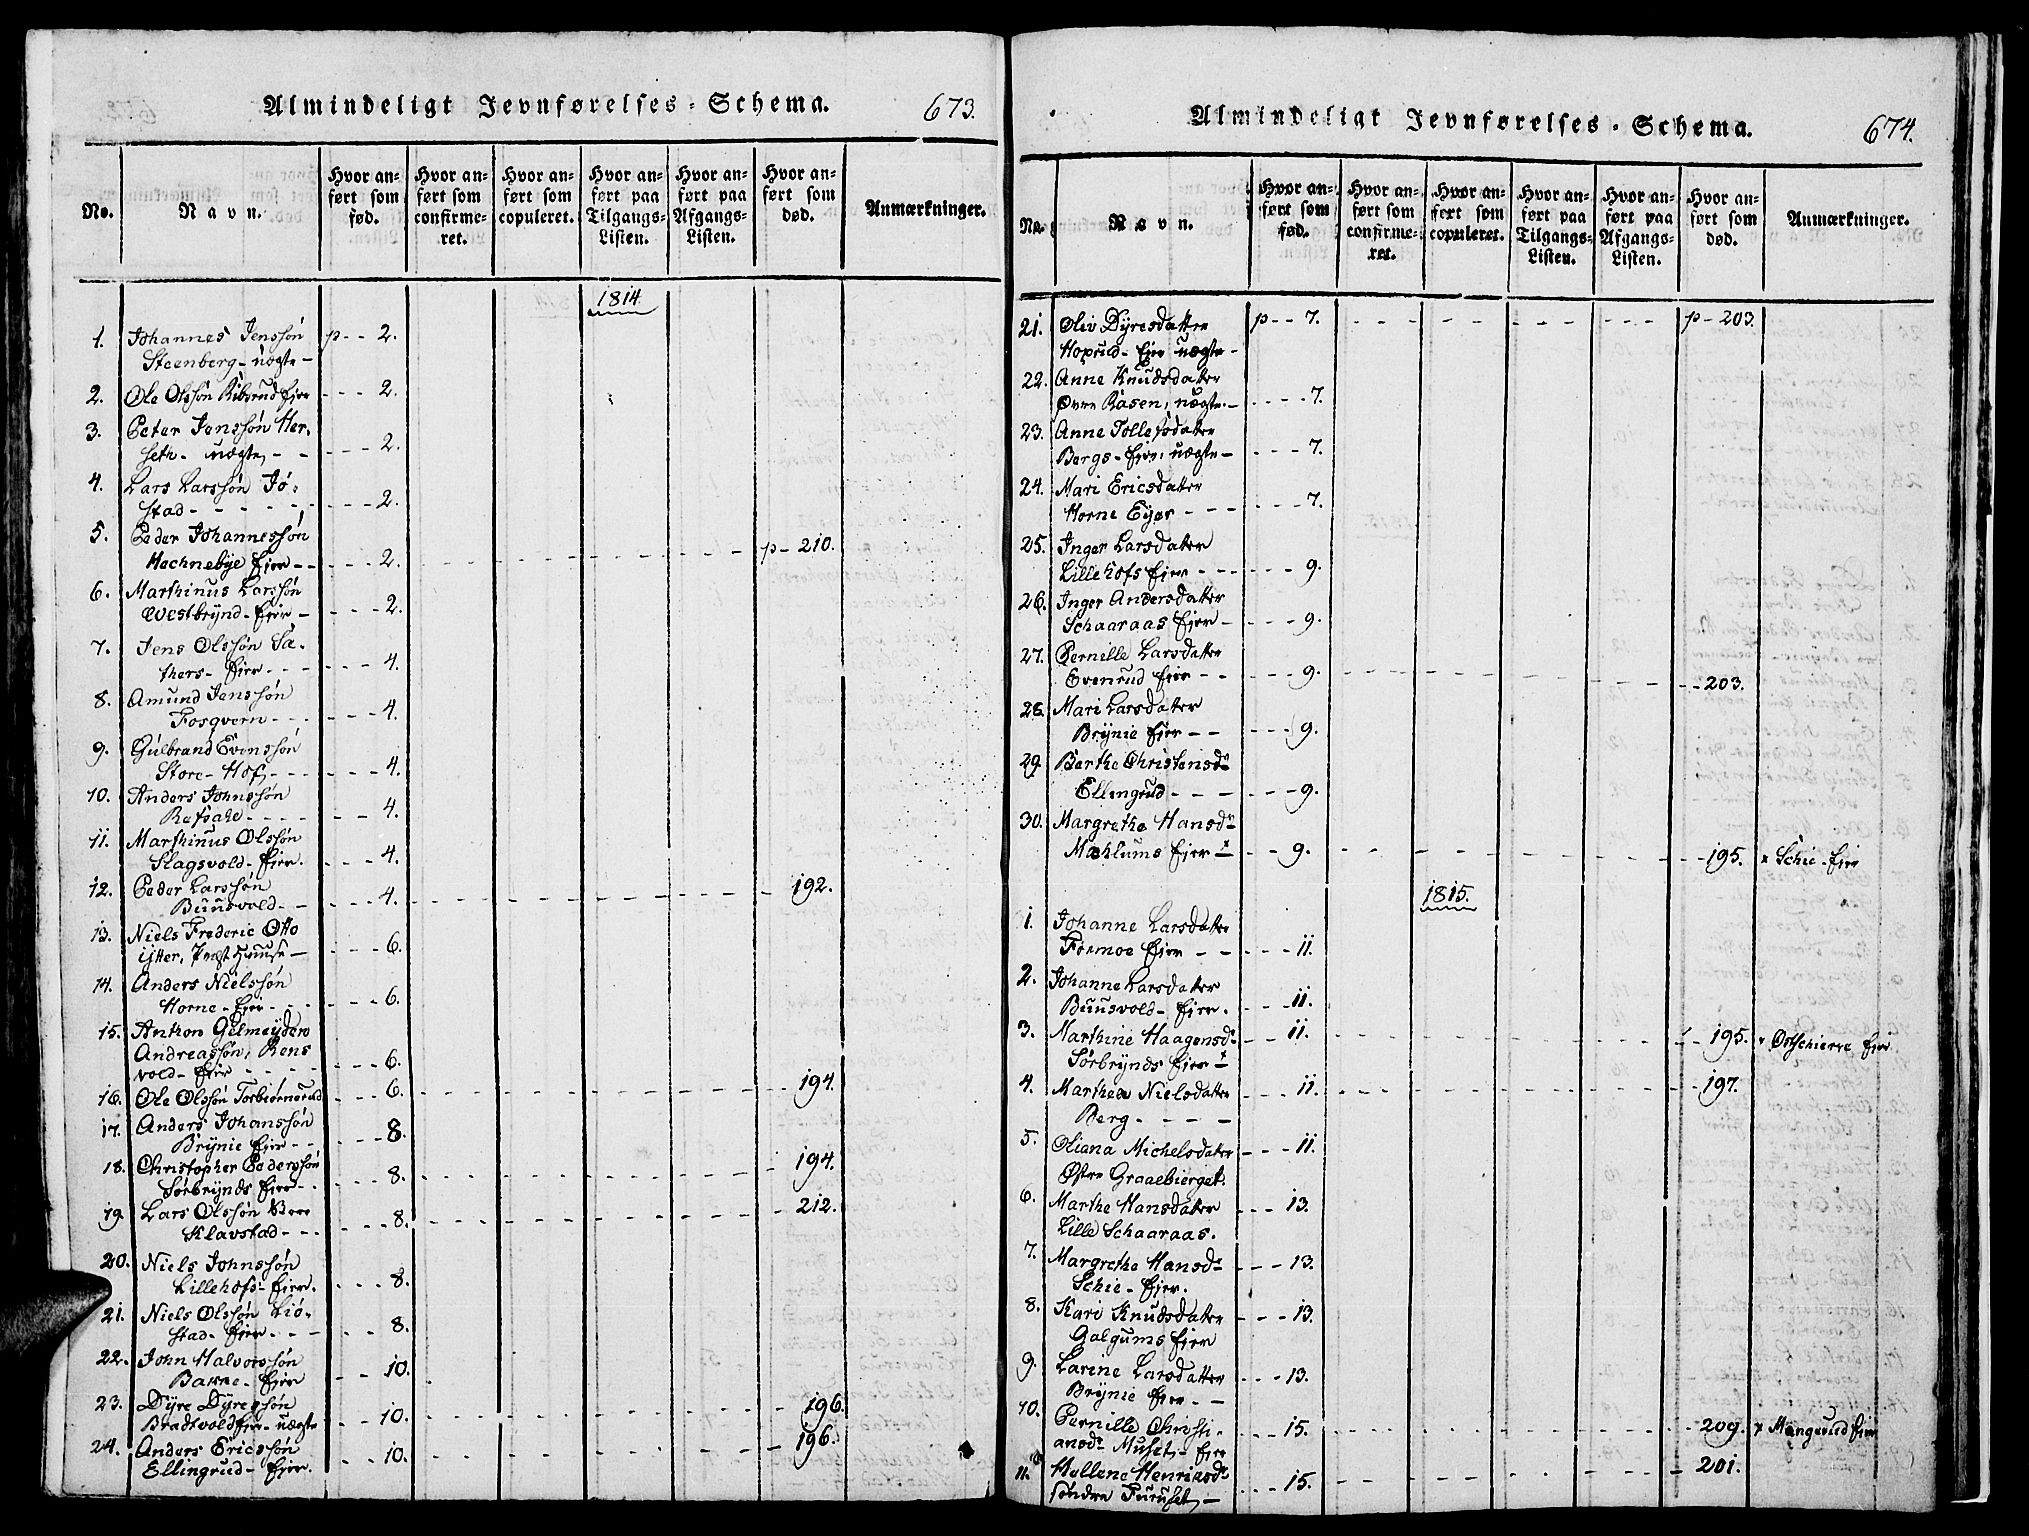 Almindeligt Jevnførelses-Schema. 673.
No. Navn. Hvor anført som fød. Hvor anført som confirmeret. Hvor anført som copuleret. Hvor anført paa Tilgangs-Listen. Hvor anført paa Afgangs-Listen. Hvor anført som død. Anmærkninger.
1814
1. Johannes Jenssøn p - - 2.
Steenberg - uægte -
2. Ole Olssøn Ribsrud Ejer - - - 2.
3. Peter Jenssøn Her-
seth - uægte, - - - - - 2.
4. Lars Larssøn Jø-
stad - - - - - - - - - 2.
5. Peder Johannessøn
Hachnebye Ejer - - - - - 2. p - 210.
6. Marthinus Larssøn
Westbrÿnd - Ejer, - - - - 2.
7. Jens Olssøn Sæ-
thers - Ejer - - - - - - 4.
8. Amund Jenssøn
Fosqvern - - - - - - 4.
9. Gulbrand Evenssøn
Store - Hof, - - - - - - 4.
10. Anders Johnssøn
Refsahl - - - - - - - 4.
11. Marthinus Olssøn
Slagsvold - Ejer. - - - 4.
12. Peder Larssøn
Buusvold - - - - - 4. 192.
13. Niels Frederic Otto
Ÿtter, Præst Huuse - - - - 6.
14. Anders Nielssøn
Horne - Ejer - - - - - 6.
15. Anthon Gelmeÿden
Andreassøn, Rens
vold - Ejer - - - - - - 6.
16. Ole Olssøn Torbiørnsrud - - - 6. 194.
17. Anders Johanssøn
Brÿnie Ejer - - - - - 8.
18. Christopher Pederssøn
Sørbrÿnds Ejer - - - - - 8. 194.
19. Lars Olssøn
Klavstad - - - - - - 8. 212.
20. Niels Johnssøn
Lillehofs - Ejer. - - - 8.
21. Niels Olssøn Liø-
stad - Ejer - - - - - - 8.
22. John Halvorssøn
Bakne - Ejer - - 10.
23. Dÿre Dÿressøn
Bradtvold Ejer - uægte - - 10. 196.
24. Anders Ericssøn
Ellingrud - Ejer. - - 10. 196.
Almindeligt Jevnførelses-Schema. 674.
No. Navn. Hvor anført som fød. Hvor anført som confirmeret. Hvor anført som copuleret. Hvor anført paa Tilgangs-Listen. Hvor anført paa Afgangs-Listen. Hvor anført som død. Anmærkninger.
21. Oliv Dÿresdatter p - - 7. p - 203.
Hoprud - Ejer uægte -
22. Anne Knudsdatter
Øvre Rasen, uægte. - - - - - 7.
23. Anne Tollefsdatter
Bergs - Ejer, uægte - - - - 7.
24. Mari Ericsdatter
Horne Eÿer - - - - - - 7.
25. Inger Larsdatter
Lillehofs Ejer - - - - - - 9.
26. Inger Andersdatter
Schaaraas Ejer - - - - 9.
27. Pernille Larsdatter
Evenrud Ejer - - - - - 9. 203.
28. Mari Larsdatter
Brÿnie Ejer - - - - - 9.
29. Berthe Christensd:r
Ellingrud - - - - - - 9.
30. Margrethe Hansd:r
Mæhlums Ejer x - - 9. 195. x Schie - Ejer
1815.
1. Johanne Larsdatter
Formoe Ejer - - - - - 11.
2. Johanne Larsdatter
Buusvold - Ejer. - - - 11.
3. Marthine Haagensd:r - - - 11. 195. x Østschierve Ejer
Sørbrÿnds Ejer x
4. Marthea Nielsdatter - - - 11. 197.
Berg - - - -
5. Oliana Michelsdatter - - - 11.
Østre Graaebierget.
6. Marthe Hansdatter - - - 13.
Lille Schaaraas.
7. Margrethe Hansd:r - - - 13.
Schie - Ejer.
8. Kari Knudsdatter - - - 13.
Galgums Ejer
9. Larine Larsdatter - - - 13.
Brÿnie Ejer - -
10. Pernille Christi-
ansd:r Muset, - Ejer - - - 15. 209. x Mangerud Ejer
11. Hellene Henricsd:r
søndre Furuset, - - - - 15. 201.